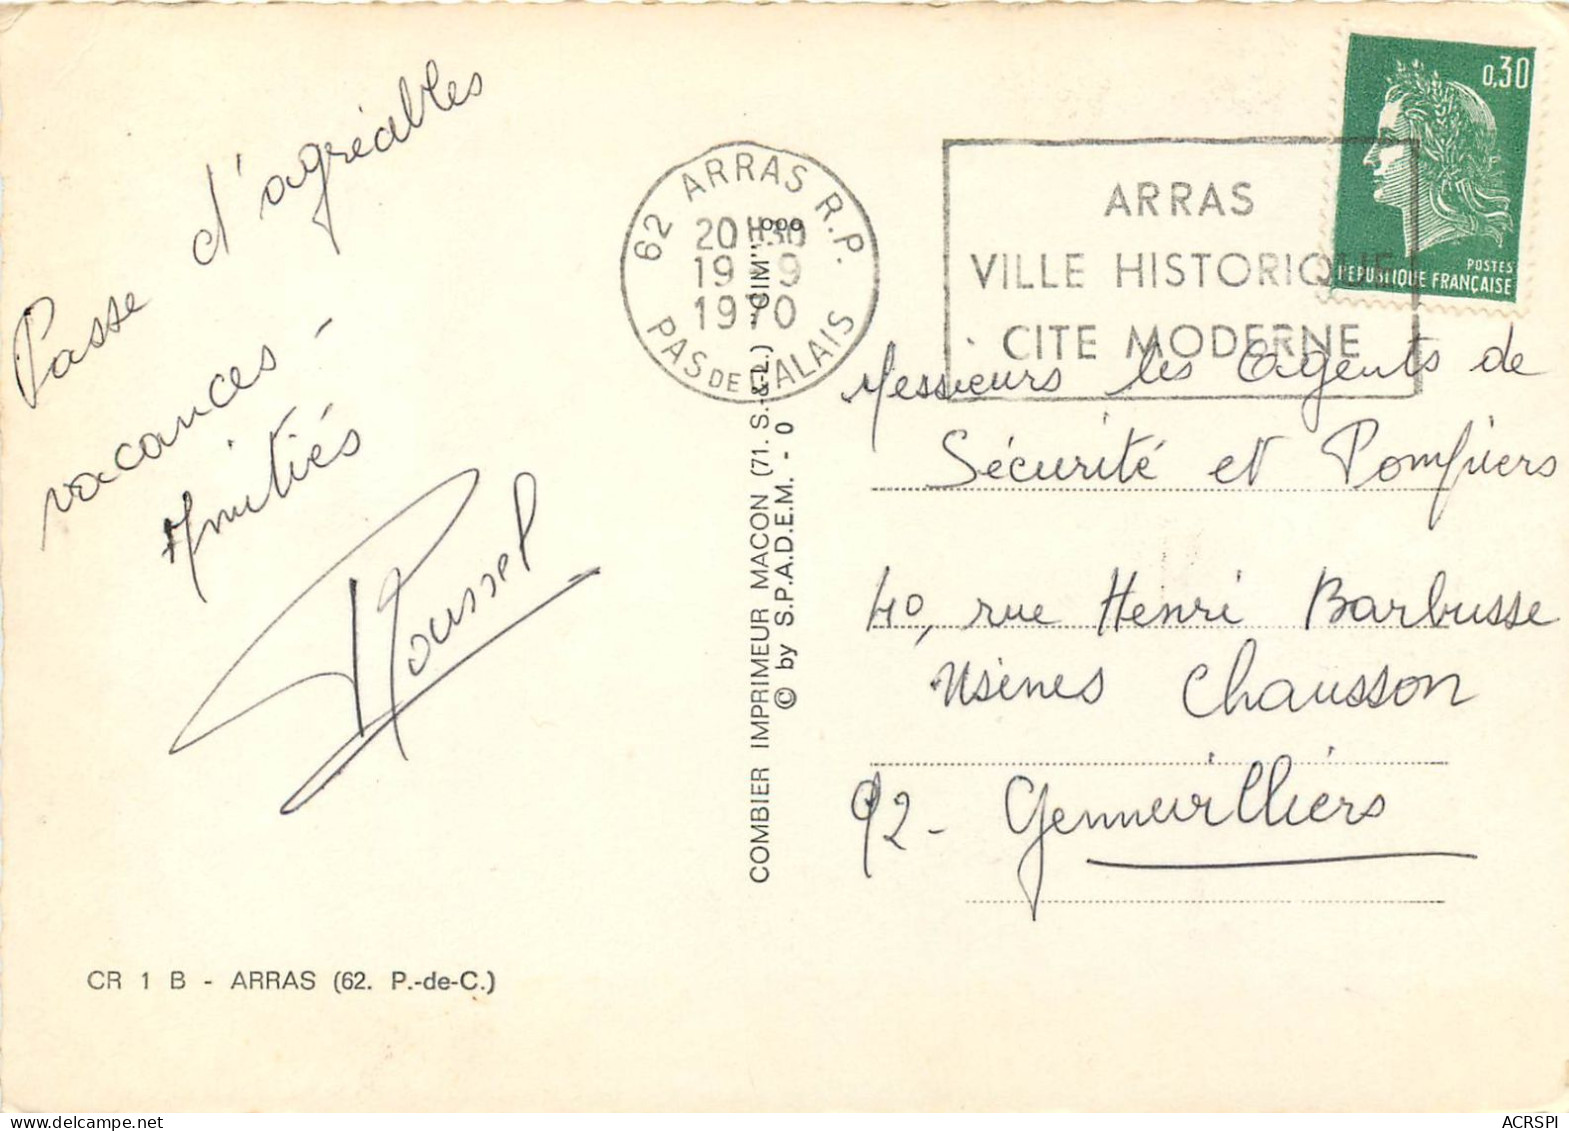 Passe d'agréables
vacances -
Amitiés
Roussel
CR 1 B - ARRAS (62. P.-de-C.)
COMBIER IMPRIMEUR MACON (71. S.-&-L.) "CIM"
© by S.P.A.D.E.M. - 0
62 ARRAS R.P.
20H30
19 - 9
1970
PAS DE CALAIS
ARRAS
VILLE HISTORIQUE
CITE MODERNE
0,30
POSTES
REPUBLIQUE FRANÇAISE
Messieurs les Agents de
Sécurité et Pompiers
40, rue Henri Barbusse
Usines Chausson
92 - Gennevilliers
ACRSPI